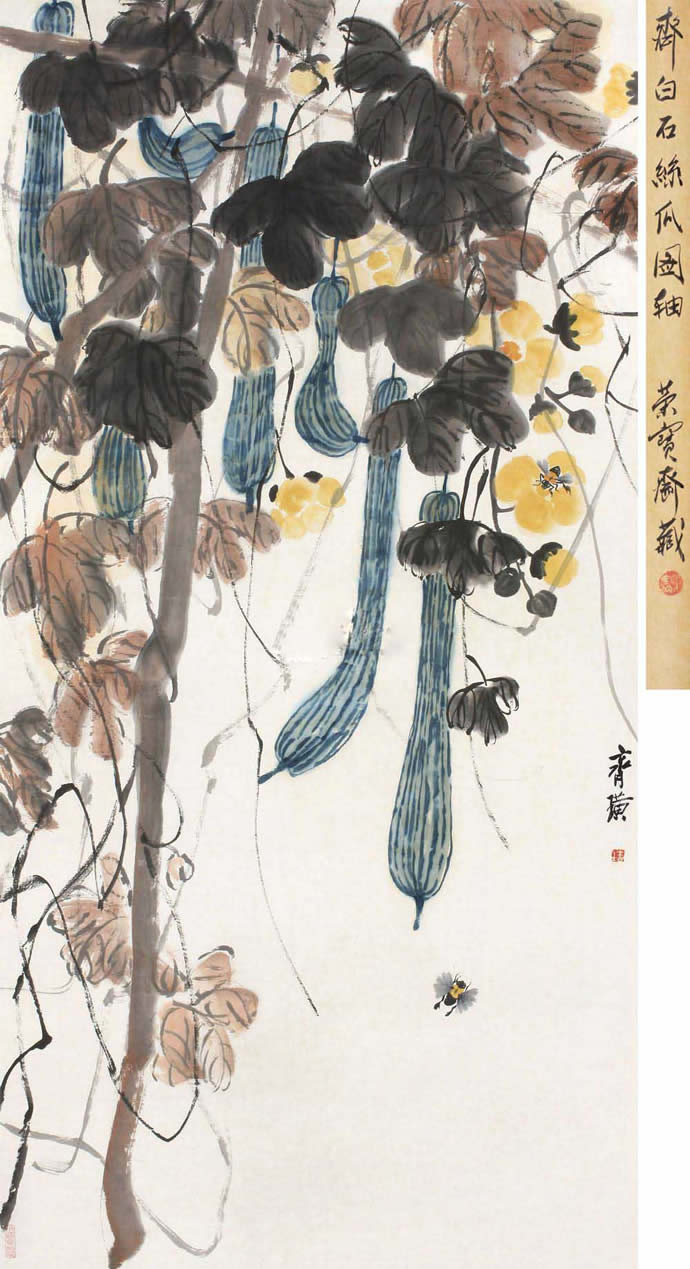 齊白石絲瓜圖軸 荣寶齋藏
齊璜